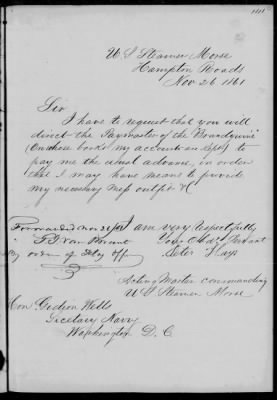 U S Steamer Morse
Hampton Roads
Nov 26 1861
Sir
I have to request that you will
direct the Paymaster of the "Brandywine"
(On whose books my accounts are kept) to
pay me the usual advance, in order
that I may have means to provide
my necessary mess outfit &c
I am very respectfully
Your Obdt Servant
Peter Hays
Acting Master commanding
U S Steamer Morse
Forwarded Nov
By order of Flag Offr
Hon Gideon Wells
Secretary Navy
Washington D. C.